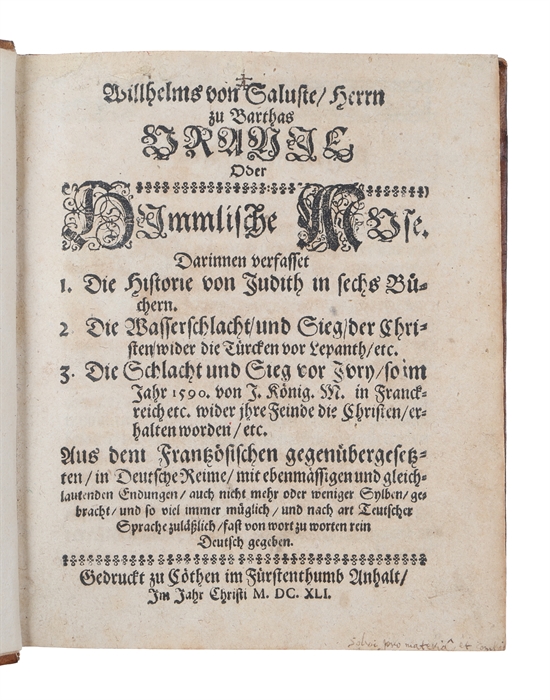 Willhelms von Saluste/ Herrn
zu Barthas
VRANIE
Oder
HImmlische MVse.
Darinnen verfasset
1. Die Historie von Judith in sechs Bü-
chern.
2 Die Wasserschlacht/und Sieg/der Chri-
sten/wider die Türcken vor Lepanth/etc.
3. Die Schlacht und Sieg vor Jvry/so im
Jahr 1590. von J. König. M. in Franck-
reich etc. wider jhre Feinde die Christen/er-
halten worden/etc.
Aus dem Frantzösischen gegenübergesetz-
ten/in Deutsche Reime/mit ebenmässigen und gleich-
lautenden Endungen/auch nicht mehr oder weniger Sylben/ge-
bracht/und so viel immer müglich/und nach art Teutscher
Sprache zuläßlich/fast von wort zu worten rein
Deutsch gegeben.
Gedruckt zu Cöthen im Fürstenthumb Anhalt/
Im Jahr Christi M. DC. XLI.
pro materia et